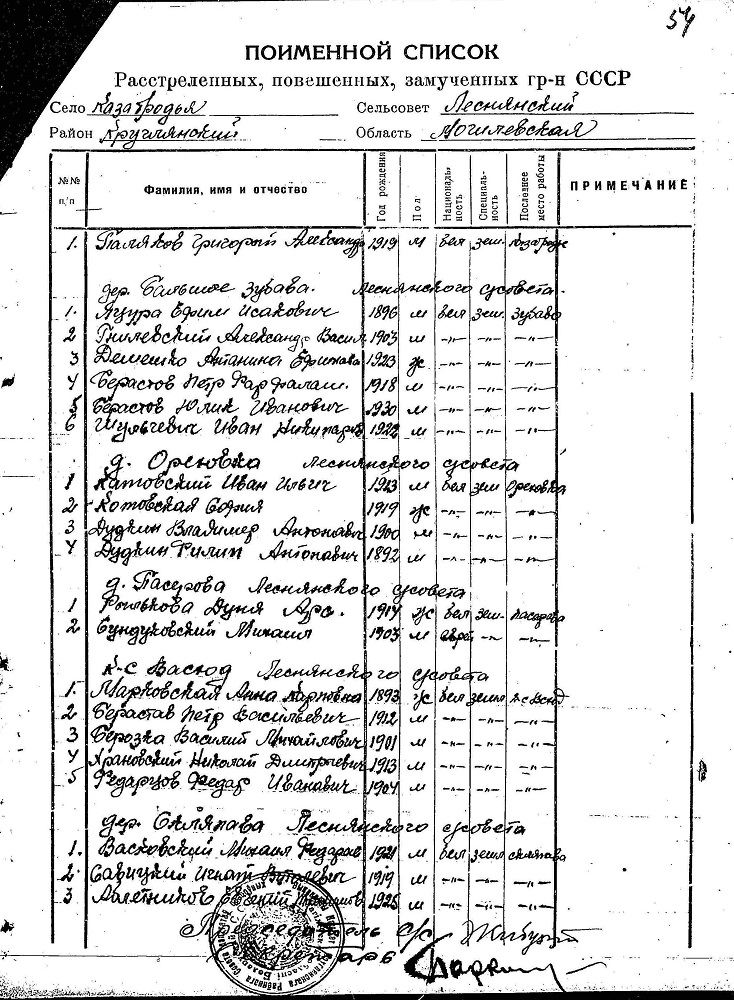 54
ПОИМЕННОЙ СПИСОК
Расстреленных, повешенных, замученных гр-н СССР
Село Казабродья Сельсовет Леснянский
Район Круглянский Область Могилевская
№№ п/п Фамилия, имя и отчество Год рождения Пол Националь- ность Специаль- ность Последнее место работы ПРИМЕЧАНИЕ
1. Паляков Григорий Александр 1919 м бел зем.
дер. Бальшое Зубава. Леснянского с/совета.
1. Яцура Ефим Исакович 1896 м бел зем. Зубаво
2 Гнилевский Александр Васил 1903 м -"- -"- -"-
3 Демешко Антанина Ефимава 1923 ж -"- -"- -"-
4 Берастов Петр 1918 м -"- -"- -"-
5 Берастов Юлик Иванович 1930 м -"- -"- -"-
6 Шульчевич Иван 1922 м -"- -"- -"-
д. Ореховка Леснянского с/совета
1 Катовский Иван Ильич 1923 м бел зем Ореховка
2 Котовская София 1919 ж -"- -"- -"-
3 Дудкин Владимер Антонавич 1900 м -"- -"- -"-
4 Дудкин Филип Антонавич 1892 м -"- -"- -"-
д. Пасырова Леснянского с/совета
1 Рылькова Дуня Арс. 1914 ж бел зем. пасырова
2 Бундуковский Михаил 1903 м еврей -"- -"-
к-с Васход Леснянского с/совета
1. Марковская Анна Карповна 1893 ж бел земл
2 Берастав Петр Васильевич 1912 м -"- -"- -"-
3 Берозка Василий Михайлович 1901 м -"- -"- -"-
4 Храновский Николай Дмитрыевич 1913 м -"- -"- -"-
5 Федарцов Федар Иванавич 1904 м -"- -"- -"-
дер. Скляпава Леснянского с/совета
1. Васковский Михаил Федарав 1921 м бел земл скляпава
2. Савицкий Игнат 1919 м -"- -"- -"-
3 Евгений 1925 м -"- -"- -"-
Председатель с/с
Секретарь